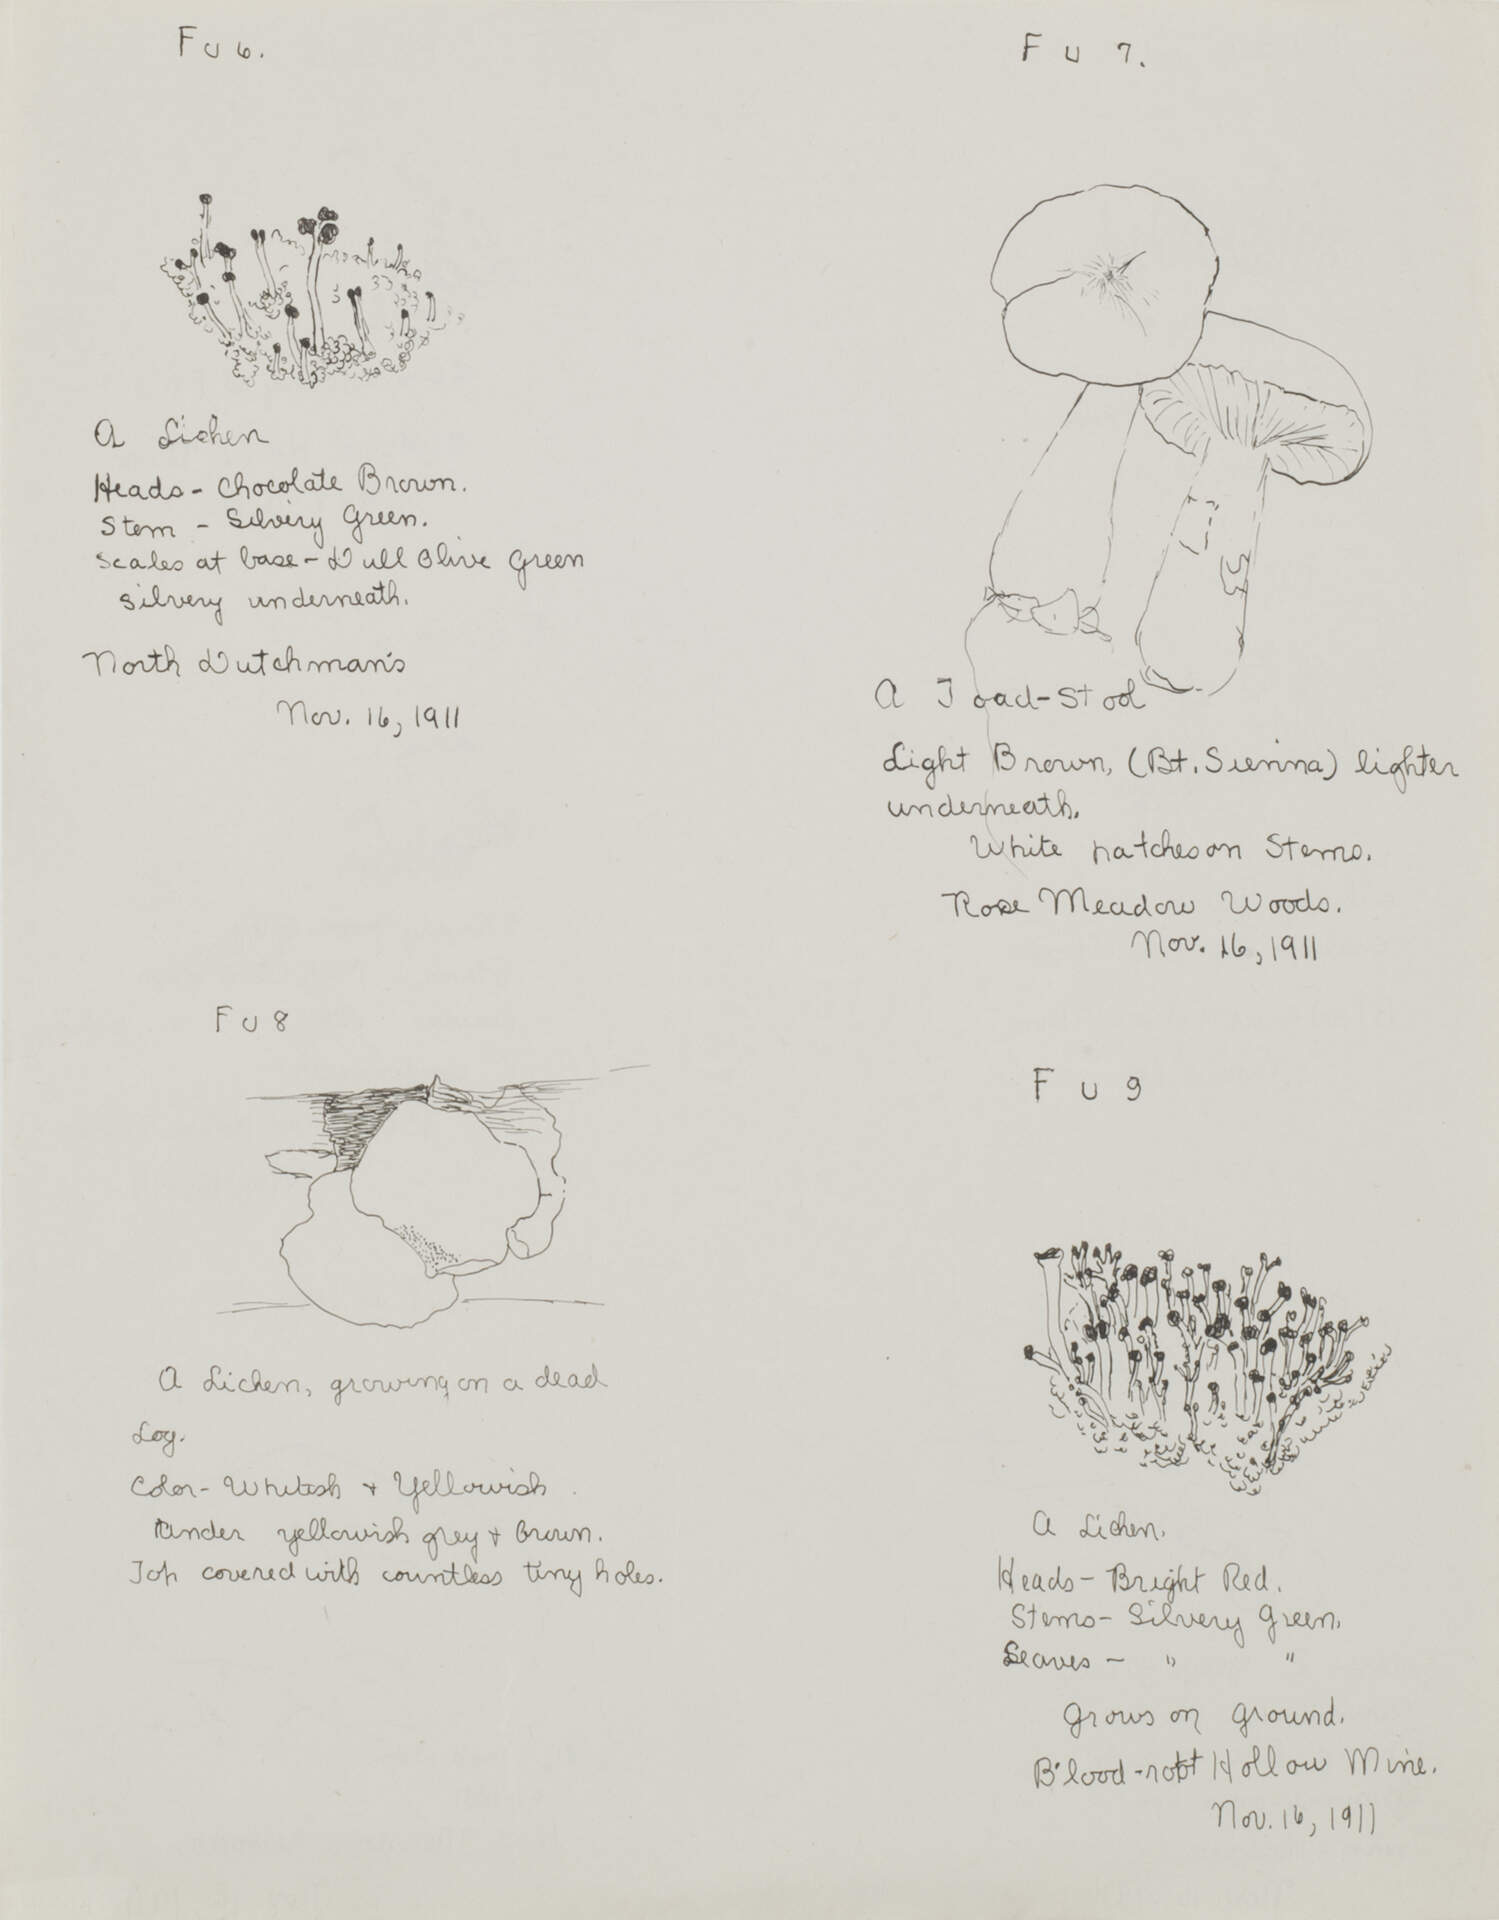 F U 6.
A Lichen
Heads - Chocolate Brown.
Stem - Silviry Green.
Scales at base - Dull Olive Green
silvery underneath.
North Dutchman's
Nov. 16, 1911
F U 7.
A Toad-Stool
Light Brown, (Bt. Sienna) lighter
underneath.
White patches on Stems.
Rose Meadow Woods.
Nov. 16, 1911
F U 8
A Lichen, growing on a dead
Log.
Color - Whitish + Yellowish.
Under yellowish grey + Brown.
Top covered with countless tiny holes.
F U 9
A Lichen.
Heads - Bright Red.
Stems - Silvery Green.
Leaves - " "
Grows on ground.
Blood-root Hollow Mine.
Nov. 16, 1911